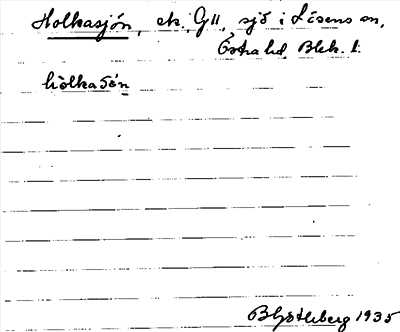 Holkasjön, ek. G11, sjö i Lösens sn,
Östra hd, Blek. l.
hòlkaSö́n
B Götleberg 1935